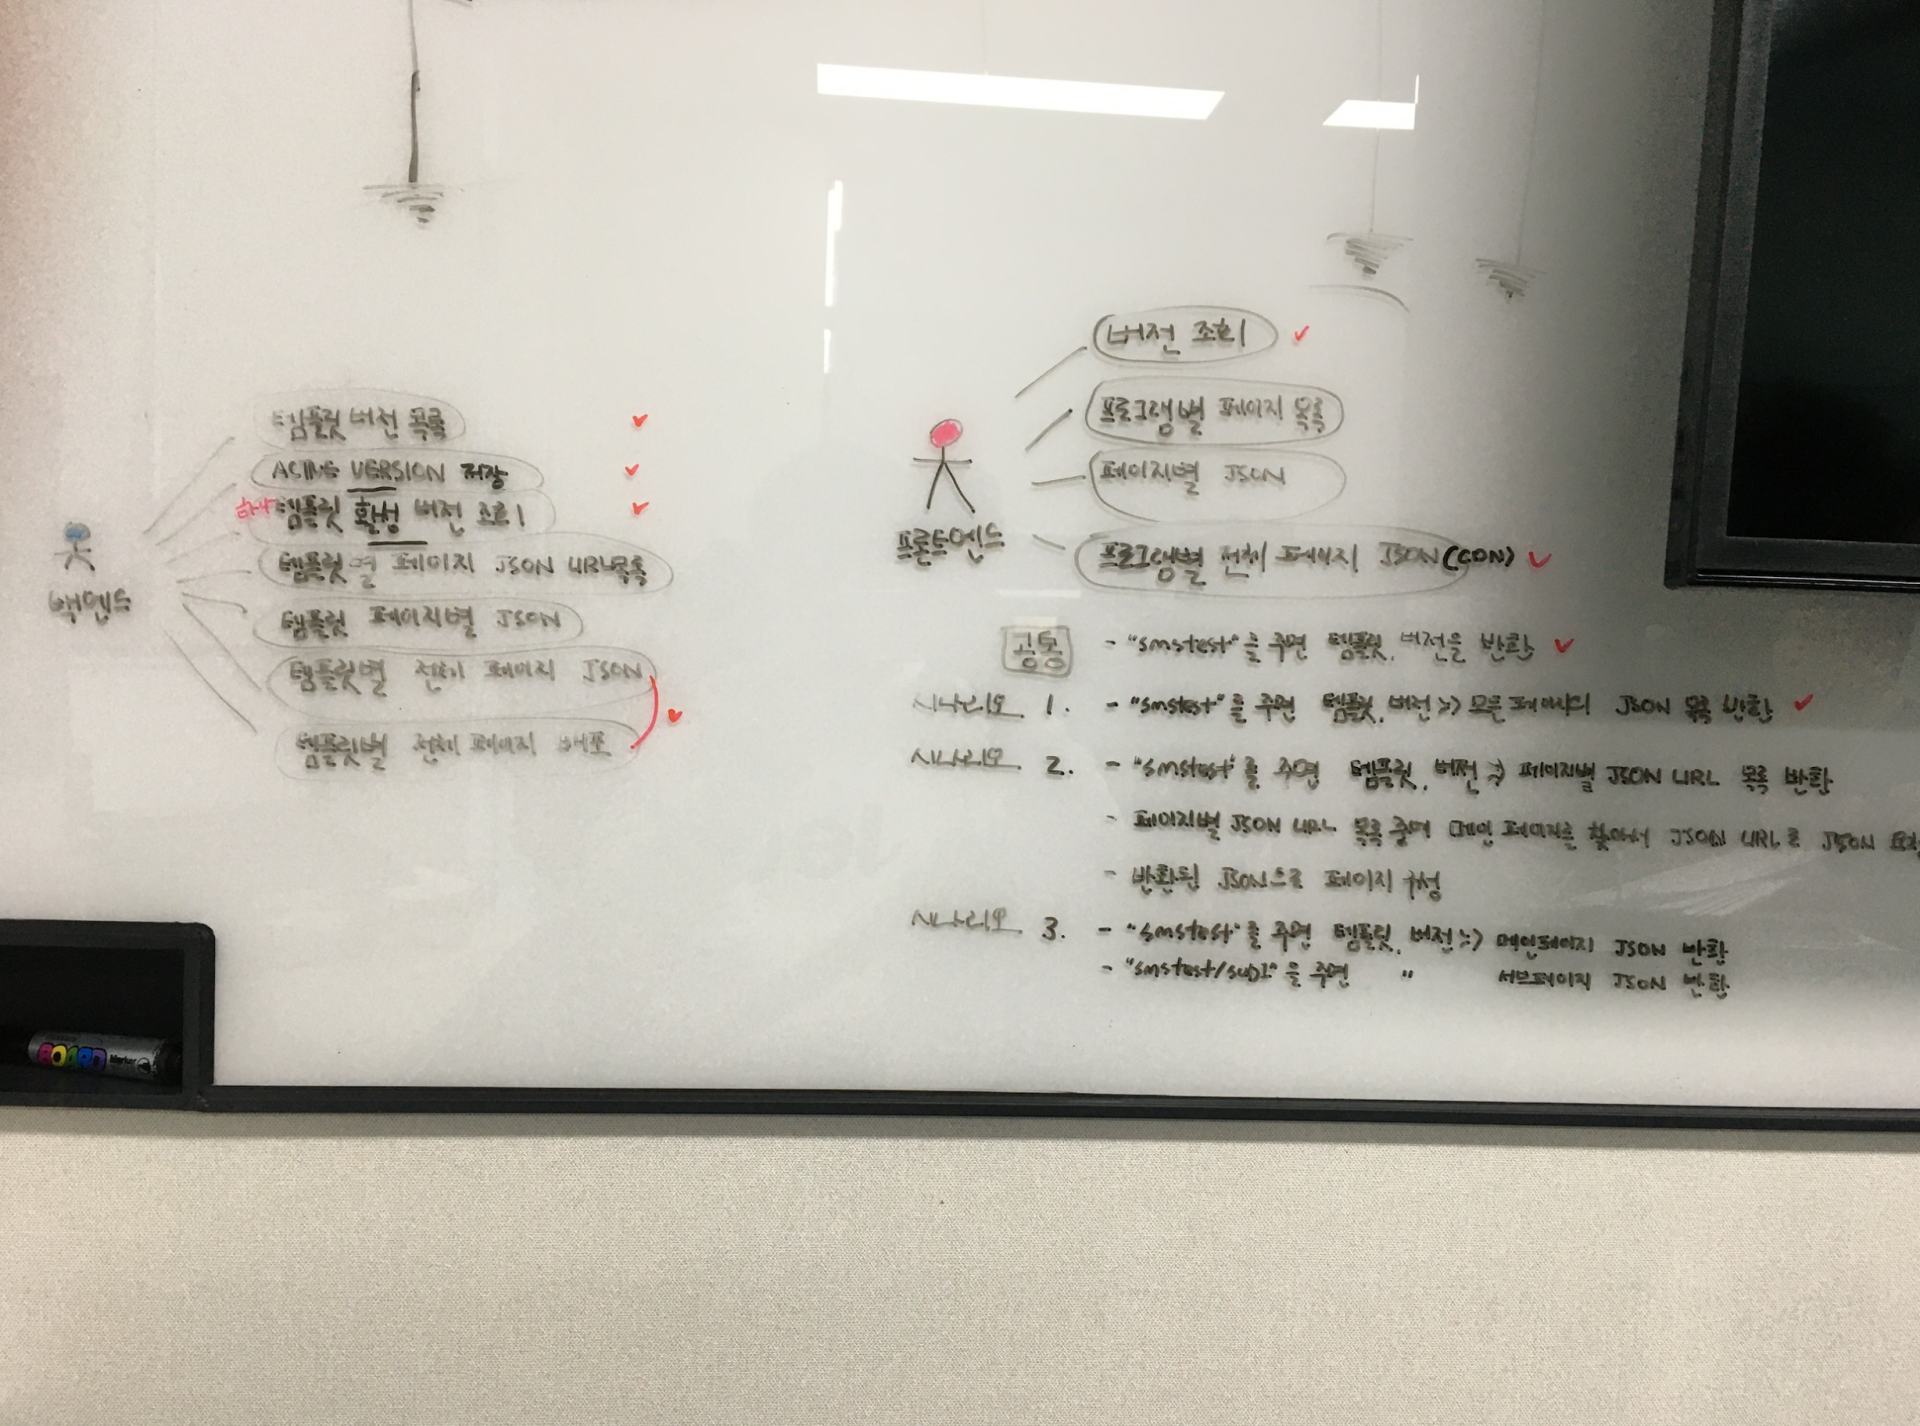 템플릿 버전 목록
ACTIVE VERSION 저장
하나 템플릿 활성 버전 조회
템플릿 별 페이지 JSON URL 목록
템플릿 페이지별 JSON
템플릿별 전체 페이지 JSON
템플릿별 전체 페이지 배포
백엔드
버전 조회
프로그램별 페이지 목록
페이지별 JSON
프로그램별 전체 페이지 JSON (CDN)
프론트엔드
공통 - "smstest"를 주면 템플릿, 버전을 반환
시나리오 1. - "smstest"를 주면 템플릿, 버전 >> 모든 페이지의 JSON 목록 반환
시나리오 2. - "smstest"를 주면 템플릿, 버전 => 페이지별 JSON URL 목록 반환
- 페이지별 JSON URL 목록 중에 메인 페이지를 찾아서 JSON URL로 JSON 요청
- 반환된 JSON으로 페이지 구성
시나리오 3. - "smstest"를 주면 템플릿, 버전 => 메인페이지 JSON 반환
- "smstest/sub1"을 주면 " 서브페이지 JSON 반환
BOARD Marker